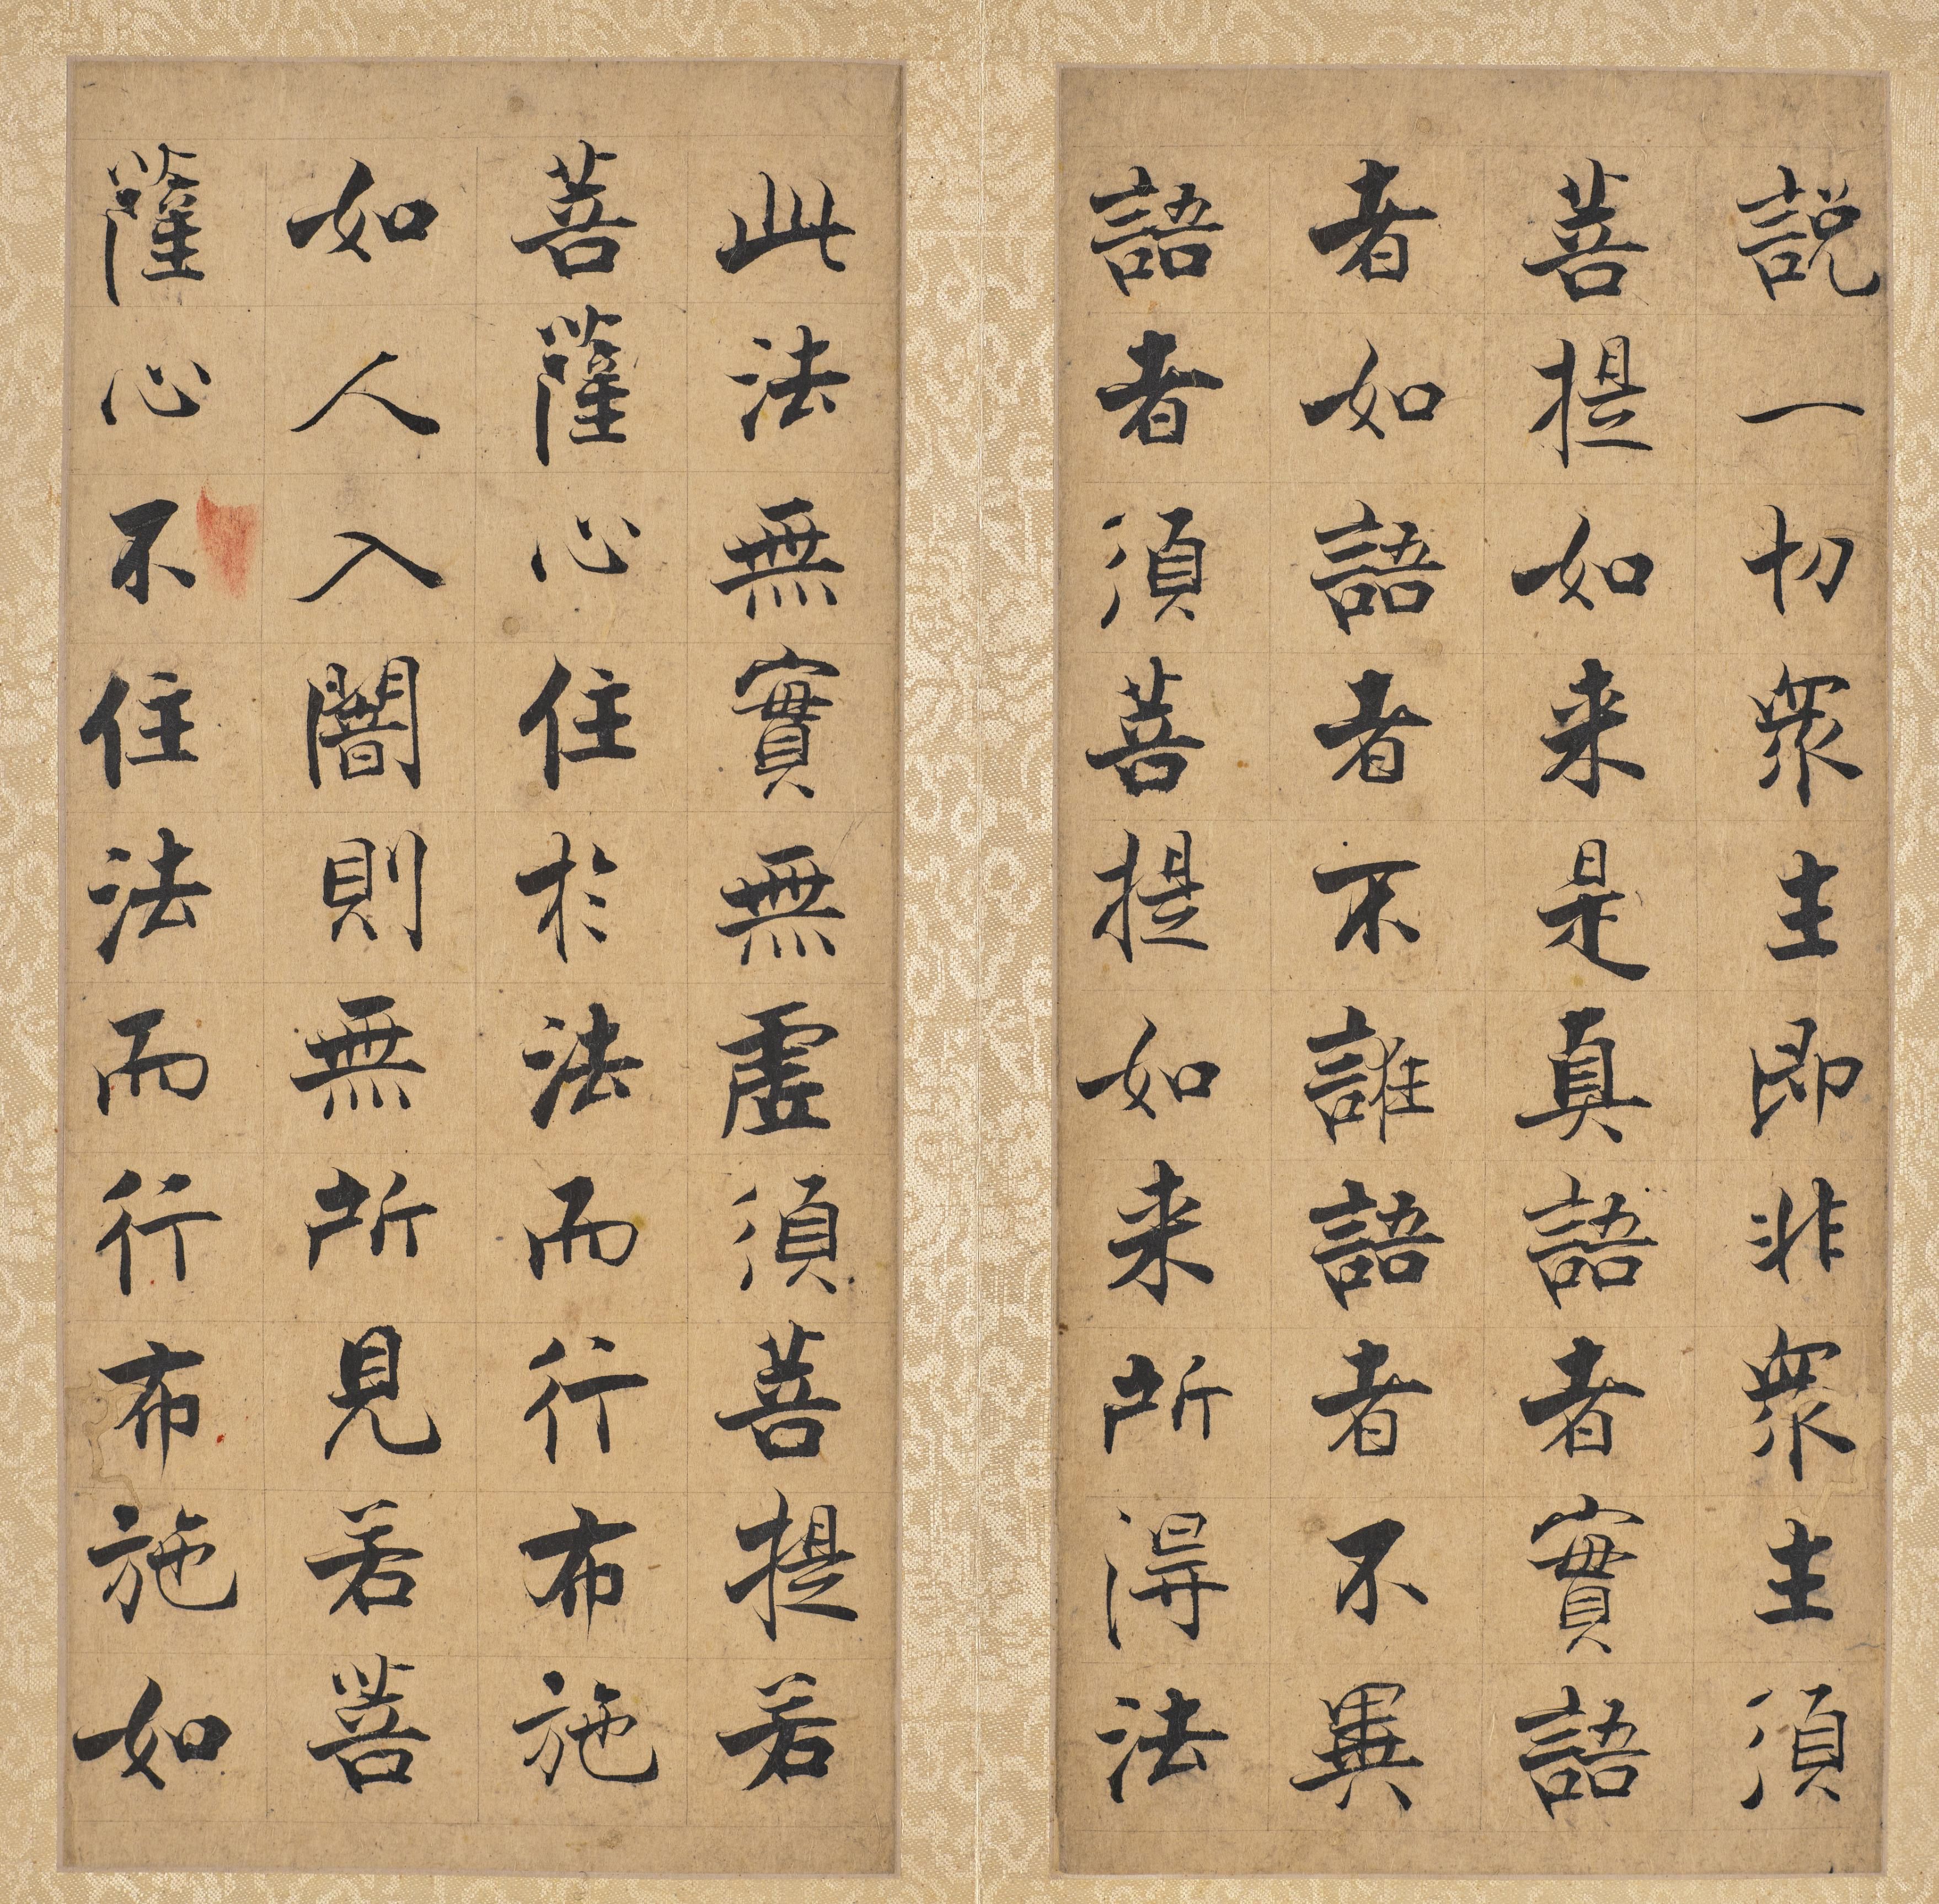 説一切衆生即非衆生須
菩提如来是真語者實語
者如語者不誰語者不異
語者須菩提如来所得法
此法無實無虛須菩提若
菩薩心住於法而行布施
如人入闇則無所見若菩
薩心不住法而行布施如